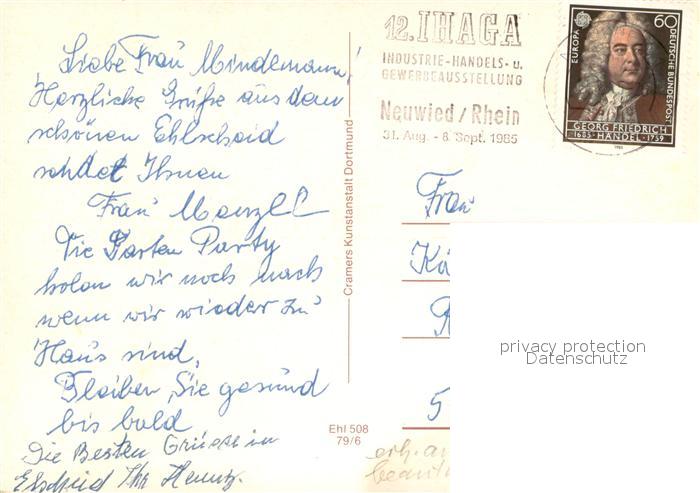 Liebe Frau Mindemann,
Herzliche Grüße aus dem
schönen Ehlscheid
sendet Ihnen
Frau
Die Garten Party
holen wir noch nach
wenn wir wieder zu
Haus sind,
Bleiben Sie gesund
bis bald
Die Besten Grüsse in
Elscheid Ihr
Cramers Kunstanstalt Dortmund
Ehl 508
79/6
12. IHAGA
INDUSTRIE-HANDELS- u.
GEWERBEAUSSTELLUNG
Neuwied / Rhein
31. Aug. - 8. Sept. 1985
EUROPA
60
DEUTSCHE BUNDESPOST
GEORG FRIEDRICH
1685 · HÄNDEL · 1759
Frau
Kä
5
privacy protection
Datenschutz